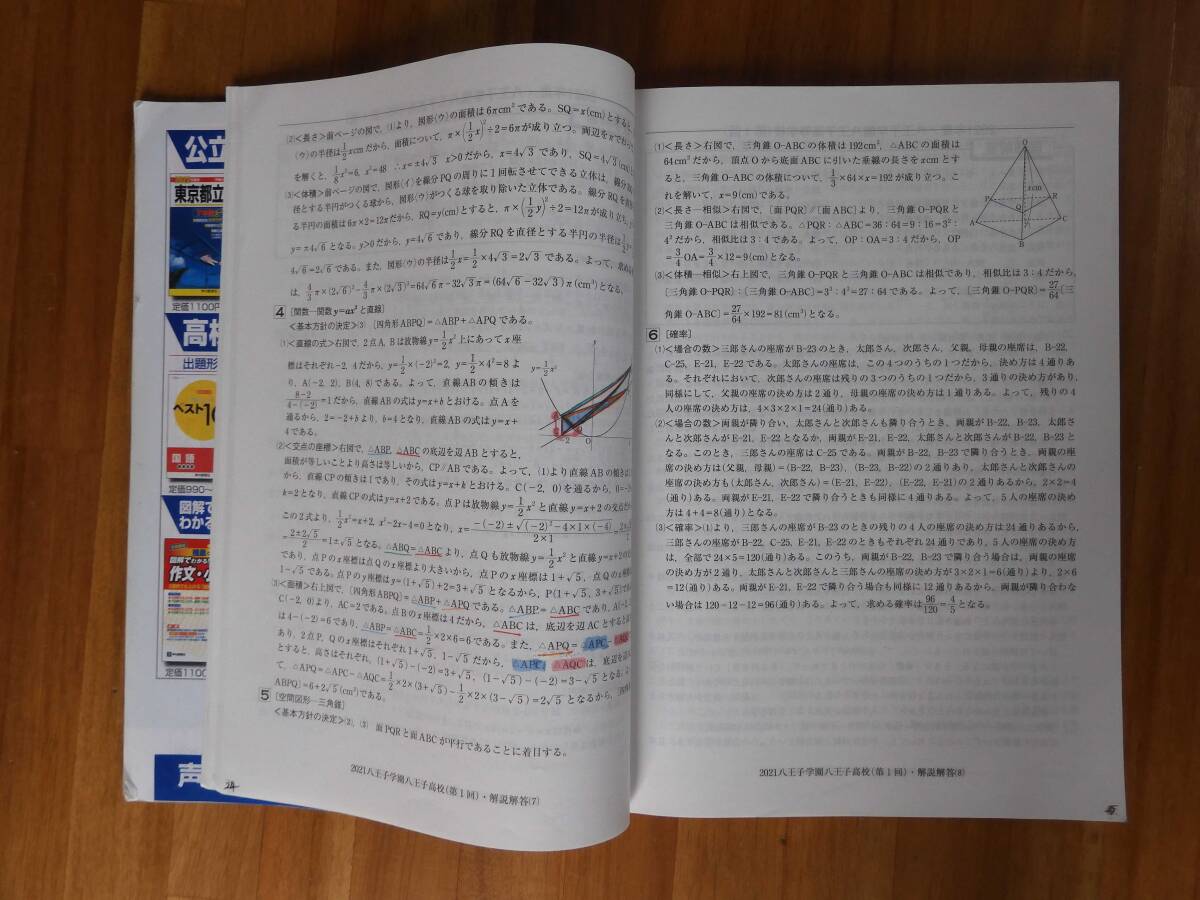 公立
東京都立
定価1100円
高校
出題形
ベスト10
国語
定価990～
図解で
わかる
作文・小
定価1100
声
(2)<長さ>前ページの図で，(1)より，図形(ウ)の面積は6πcm²である。SQ＝x(cm)とすると，
(ウ)の半径は1/2xcmだから，面積について，π×(1/2x)²÷2＝6πが成り立つ。両辺をπでわって
を解くと，1/8x²＝6，x²＝48 ∴x＝±4√3 x>0だから，x＝4√3であり，SQ＝4√3(cm)と
(3)<体積>前ページの図で，図形(イ)を線分PQの周りに1回転させてできる立体は，線分
径とする半円がつくる球から，図形(ウ)がつくる球を取り除いた立体である。線分RQを直
る半円の面積は6π×2＝12πだから，RQ＝y(cm)とすると，π×(1/2y)²÷2＝12πが成り立ち，
y＝±4√6となる。y>0だから，y＝4√6であり，線分RQを直径とする半円の半径は1/2y
4√6＝2√6である。また，図形(ウ)の半径は1/2x＝1/2×4√3＝2√3である。よって，求め
は，4/3π×(2√6)³－4/3π×(2√3)³＝64√6π－32√3π＝(64√6－32√3)π(cm³)となる。
4 〔関数―関数y＝ax²と直線〕
<基本方針の決定>(3) 〔四角形ABPQ〕＝△ABP＋△APQである。
(1)<直線の式>右図で，2点A，Bは放物線y＝1/2x²上にあってx座
標はそれぞれ－2，4だから，y＝1/2×(－2)²＝2，y＝1/2×4²＝8よ
り，A(－2，2)，B(4，8)である。よって，直線ABの傾きは
8－2/4－(－2)＝1だから，直線ABの式はy＝x＋bとおける。点Aを
通るから，2＝－2＋bより，b＝4となり，直線ABの式はy＝x＋
4である。
y＝1/2x²
－2
O
x
(2)<交点の座標>右図で，△ABP，△ABCの底辺を辺ABとすると，
面積が等しいことより高さは等しいから，CP∥ABである。よって，(1)より直線ABの傾きは
から，直線CPの傾きは1であり，その式はy＝x＋kとおける。C(－2，0)を通るから，0＝－2
k＝2となり，直線CPの式はy＝x＋2である。点Pは放物線y＝1/2x²と直線y＝x＋2の交点だ
この2式より，1/2x²＝x＋2，x²－2x－4＝0となり，x＝－(－2)±√(－2)²－4×1×(－4)/2×1＝
2±2√5/2＝1±√5となる。△ABQ＝△ABCより，点Qも放物線y＝1/2x²と直線y＝x＋2の
であり，点Pのx座標は点Qのx座標より大きいから，点Pのx座標は1＋√5，点Qのx座標
1－√5である。点Pのy座標はy＝(1＋√5)＋2＝3＋√5となるから，P(1＋√5，3＋√5)で
(3)<面積>右上図で，〔四角形ABPQ〕＝△ABP＋△APQである。△ABP＝△ABCであり，A(－2，
C(－2，0)より，AC＝2である。点Bのx座標は4だから，△ABCは，底辺を辺ACとすると高
は4－(－2)＝6であり，△ABP＝△ABC＝1/2×2×6＝6である。また，△APQ＝△APC－△AQC
あり，2点P，Qのx座標はそれぞれ1＋√5，1－√5だから，△APC，△AQCは，底辺を辺
とすると，高さはそれぞれ，(1＋√5)－(－2)＝3＋√5，(1－√5)－(－2)＝3－√5となる。
て，△APQ＝△APC－△AQC＝1/2×2×(3＋√5)－1/2×2×(3－√5)＝2√5となるから，〔四角形
ABPQ〕＝6＋2√5(cm²)である。
5 〔空間図形―三角錐〕
<基本方針の決定>(2)，(3) 面PQRと面ABCが平行であることに着目する。
2021八王子学園八王子高校(第1回)・解説解答(7)
24
(1)<長さ>右図で，三角錐O-ABCの体積は192cm³，△ABCの面積は
64cm²だから，頂点Oから底面ABCに引いた垂線の長さをxcmとす
ると，三角錐O-ABCの体積について，1/3×64×x＝192が成り立つ。こ
れを解いて，x＝9(cm)である。
(2)<長さ―相似>右図で，〔面PQR〕∥〔面ABC〕より，三角錐O-PQRと
三角錐O-ABCは相似である。△PQR：△ABC＝36：64＝9：16＝3²：
4²だから，相似比は3：4である。よって，OP：OA＝3：4だから，OP
＝3/4OA＝3/4×12＝9(cm)となる。
O
xcm
P
Q
R
A
B
C
(3)<体積―相似>右上図で，三角錐O-PQRと三角錐O-ABCは相似であり，相似比は3：4だから，
〔三角錐O-PQR〕：〔三角錐O-ABC〕＝3³：4³＝27：64である。よって，〔三角錐O-PQR〕＝27/64〔三
角錐O-ABC〕＝27/64×192＝81(cm³)となる。
6 〔確率〕
(1)<場合の数>三郎さんの座席がB-23のとき，太郎さん，次郎さん，父親，母親の座席は，B-22，
C-25，E-21，E-22である。太郎さんの座席は，この4つのうちの1つだから，決め方は4通りあ
る。それぞれにおいて，次郎さんの座席は残りの3つのうちの1つだから，3通りの決め方があり，
同様にして，父親の座席の決め方は2通り，母親の座席の決め方は1通りある。よって，残りの4
人の座席の決め方は，4×3×2×1＝24(通り)ある。
(2)<場合の数>両親が隣り合い，太郎さんと次郎さんも隣り合うとき，両親がB-22，B-23，太郎さ
んと次郎さんがE-21，E-22となるか，両親がE-21，E-22，太郎さんと次郎さんがB-22，B-23と
なる。このとき，三郎さんの座席はC-25である。両親がB-22，B-23で隣り合うとき，両親の座
席の決め方は(父親，母親)＝(B-22，B-23)，(B-23，B-22)の2通りあり，太郎さんと次郎さんの
座席の決め方も(太郎さん，次郎さん)＝(E-21，E-22)，(E-22，E-21)の2通りあるから，2×2＝4
(通り)ある。両親がE-21，E-22で隣り合うときも同様に4通りある。よって，5人の座席の決め
方は4＋4＝8(通り)となる。
(3)<確率>(1)より，三郎さんの座席がB-23のときの残りの4人の座席の決め方は24通りあるから，
三郎さんの座席がB-22，C-25，E-21，E-22のときもそれぞれ24通りであり，5人の座席の決め方
は，全部で24×5＝120(通り)ある。このうち，両親がB-22，B-23で隣り合う場合は，両親の座席
の決め方が2通り，太郎さんと次郎さんと三郎さんの座席の決め方が3×2×1＝6(通り)より，2×6
＝12(通り)ある。両親がE-21，E-22で隣り合う場合も同様に12通りあるから，両親が隣り合わな
い場合は120－12－12＝96(通り)ある。よって，求める確率は96/120＝4/5となる。
2021八王子学園八王子高校(第1回)・解説解答(8)